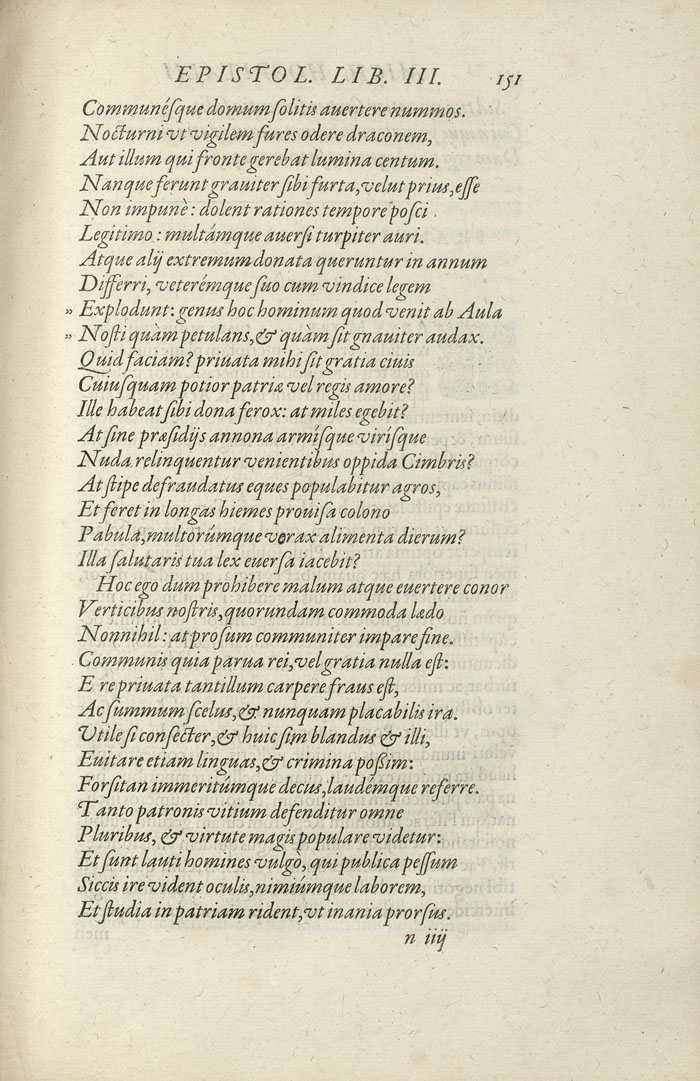 EPISTOL. LIB. III. 151
Communésque domum solitis auertere nummos.
Nocturni vt vigilem fures odere draconem,
Aut illum qui fronte gerebat lumina centum.
Nanque ferunt grauiter sibi furta, velut prius, esse
Non impunè: dolent rationes tempore posci
Legitimo: multámque auersi turpiter auri.
Atque alij extremum donata queruntur in annum
Differri, veterémque suo cum vindice legem
" Explodunt: genus hoc hominum quod venit ab Aula
" Nosti quàm petulans, & quàm sit gnauiter audax.
Quid faciam? priuata mihi sit gratia ciuis
Cuiusquam potior patriæ vel regis amore?
Ille habeat sibi dona ferox: at miles egebit?
At sine præsidijs annona armísque virísque
Nuda relinquentur venientibus oppida Cimbris?
At stipe defraudatus eques populabitur agros,
Et feret in longas hiemes prouisa colono
Pabula, multorúmque vorax alimenta dierum?
Illa salutaris tua lex euersa iacebit?
Hoc ego dum prohibere malum atque euertere conor
Verticibus nostris, quorundam commoda lædo
Nonnihil: at prosum communiter impare fine.
Communis quia parua rei, vel gratia nulla est:
E re priuata tantillum carpere fraus est,
Ac summum scelus, & nunquam placabilis ira.
Vtile si consecter, & huic sim blandus & illi,
Euitare etiam linguas, & crimina possim:
Forsitan immeritúmque decus, laudémque referre.
Tanto patronis vitium defenditur omne
Pluribus, & virtute magis populare videtur:
Et sunt lauti homines vulgò, qui publica pessum
Siccis ire vident oculis, nimiúmque laborem,
Et studia in patriam rident, vt inania prorsus.
n iiij